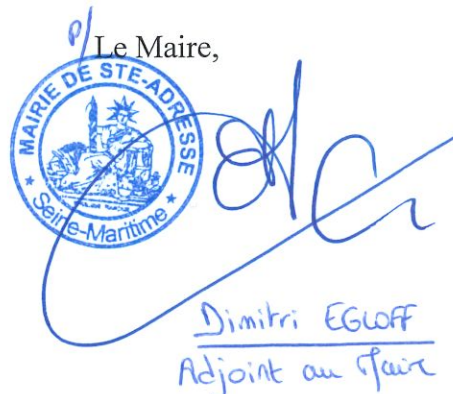 P/ Le Maire,
MAIRIE DE STE-ADRESSE
* Seine-Maritime *
Dimitri EGLOFF
Adjoint au Maire